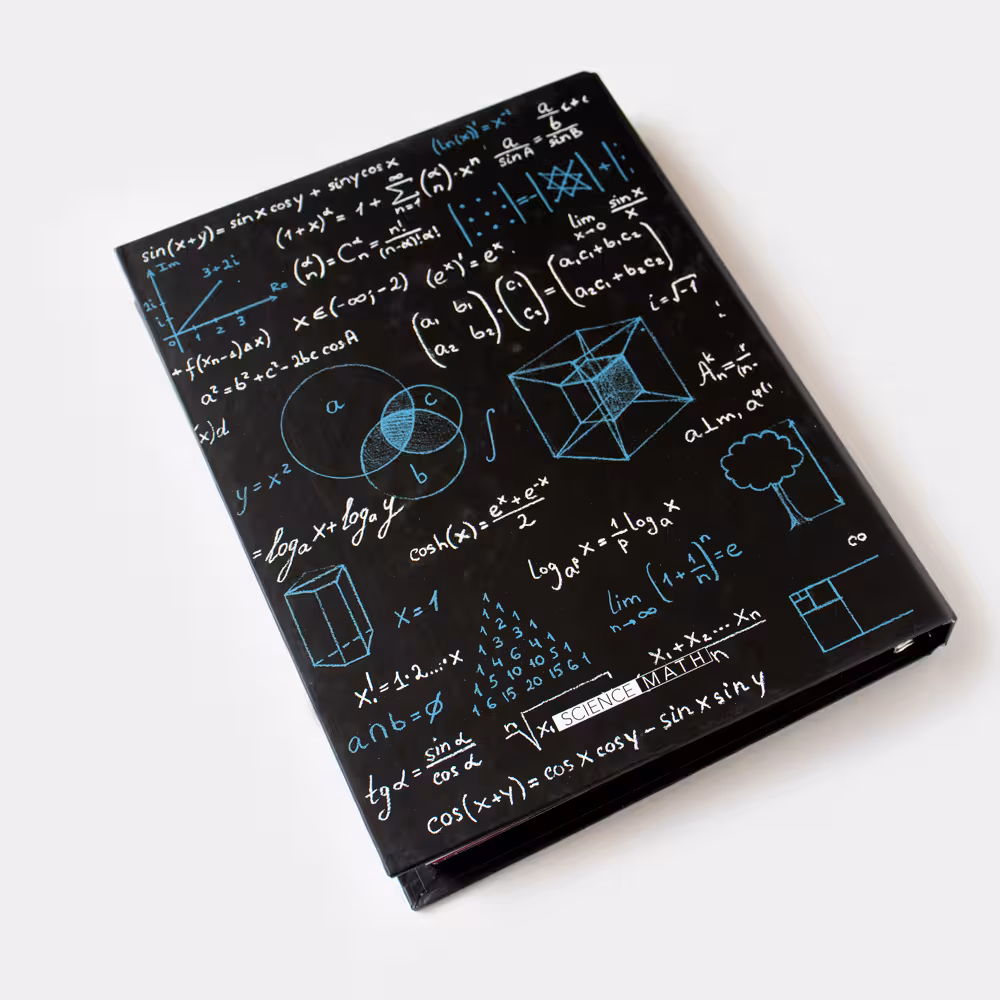 (ln(x))' = x⁻¹
a/sinA = b/sinB
a/b c+c
sin(x+y) = sin x cos y + sin y cos x
(1+x)^α = 1 + ∑_{n=1}^{∞} (α n) · x^n
lim_{x→0} sin x / x
Im
3+2i
Re
2i
i
0 1 2 3
(α n) = C_n^α = n! / (n-α)!α!
x ∈ (-∞; -2)
(e^x)' = e^x
(a₁ b₁ a₂ b₂) · (c₁ c₂) = (a₁c₁+b₁c₂ a₂c₁+b₂c₂)
i = √-1
+ f(x_{n-1})Δx)
a² = b² + c² - 2bc cosA
(x)d
a
c
b
∫
A_n^k =
a⊥m, a
y = x²
= log_a x + log_a y
cosh(x) = (e^x + e^{-x}) / 2
log_{a^p} x = 1/p log_a x
lim_{n→∞} (1 + 1/n)^n = e
x = 1
1
1 1
1 2 1
1 3 3 1
1 4 6 4 1
1 5 10 10 5 1
1 6 15 20 15 6 1
x! = 1·2...·x
a∩b = Ø
x₁ + x₂ ... x_n
n
ⁿ√x₁
SCIENCE MATH
tg α = sin α / cos α
cos(x+y) = cos x cos y - sin x sin y
co